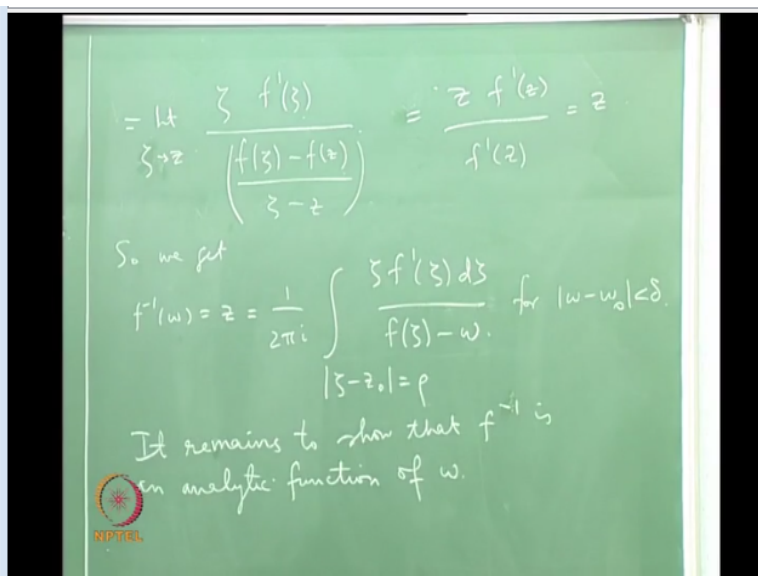 = lt ζ→z ζ f'(ζ) / ((f(ζ) − f(z)) / (ζ − z)) = z f'(z) / f'(z) = z
So we get
f⁻¹(w) = z = 1/(2πi) ∫_{|ζ−z₀|=ρ} ζ f'(ζ) dζ / (f(ζ) − w) for |w − w₀| < δ.
It remains to show that f⁻¹ is
an analytic function of w.
NPTEL